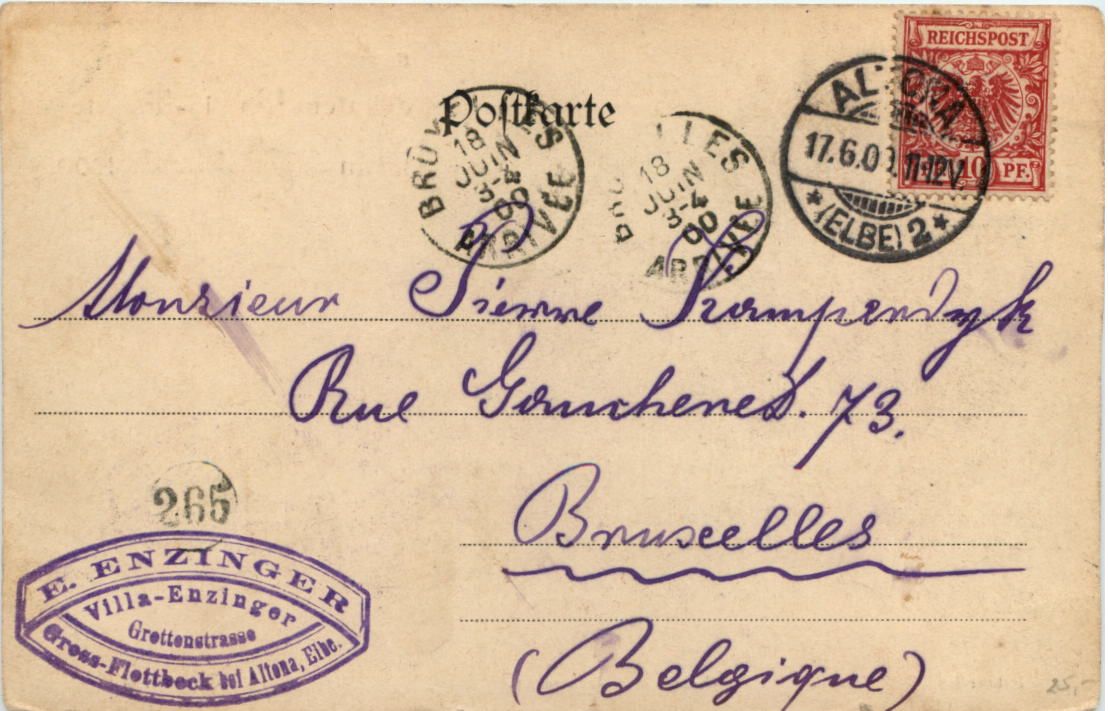 REICHSPOST
10 PF.
ALTONA
17.6.00 11-12V.
* (ELBE) 2 *
Postkarte
BRUXELLES
18
JUIN
3-4
00
ARRIVÉE
LLES
18
JUIN
3-4
00
ARRIVÉE
Monsieur Pierre Kamperdyk
Rue 73.
Bruxelles
(Belgique)
265
E. ENZINGER
Villa-Enzinger
Grottenstrasse
Gross-Flottbeck bei Altona, Elbe.
25,-